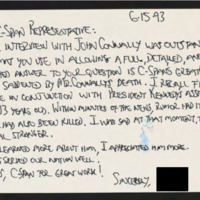 6-15-93
C-SPAN REPRESENTATIVE:
INTERVIEW WITH JOHN CONNALLY WAS OUTSTAN
AT YOU USE IN ALLOWING A FULL, DETAILED, AND
ED ANSWER TO YOUR QUESTION IS C-SPAN'S GREAT
SADDENED BY MR. CONNALLY'S DEATH. I RECALL F
E IN CONJUNCTION WITH PRESIDENT KENNEDY'S ASS
3 YEARS OLD. WITHIN MINUTES OF THE NEWS, RUMOR HAD IT
HAD ALSO BEEN KILLED. I WAS SAD AT THAT MOMENT, T
AL STRANGER.
LEARNED MORE ABOUT HIM, I APPRECIATED HIM MORE.
SERVED OUR NATION WELL.
S, C-SPAN FOR GREAT WORK!
SINCERELY,